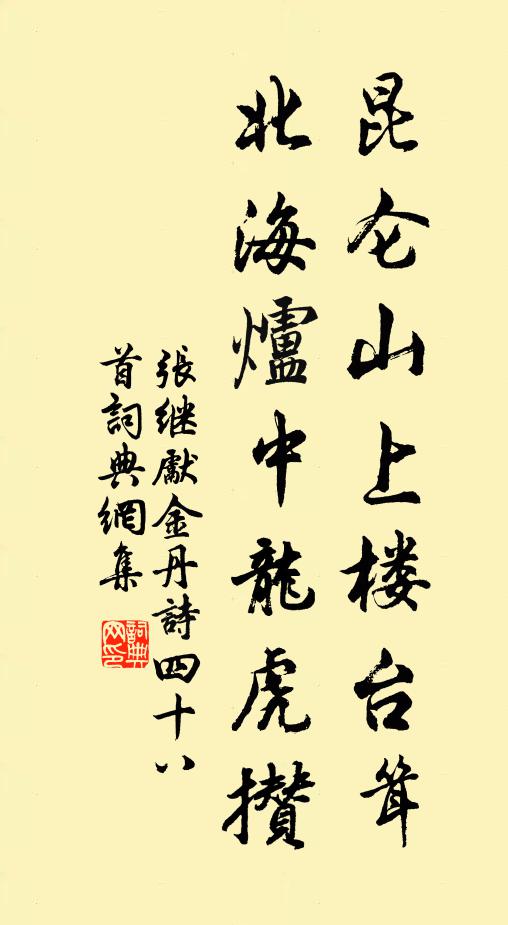 昆仑山上楼台耸
北海爐中龍虎攢
張继獻金丹詩四十八
首詞典網集
詞典網印